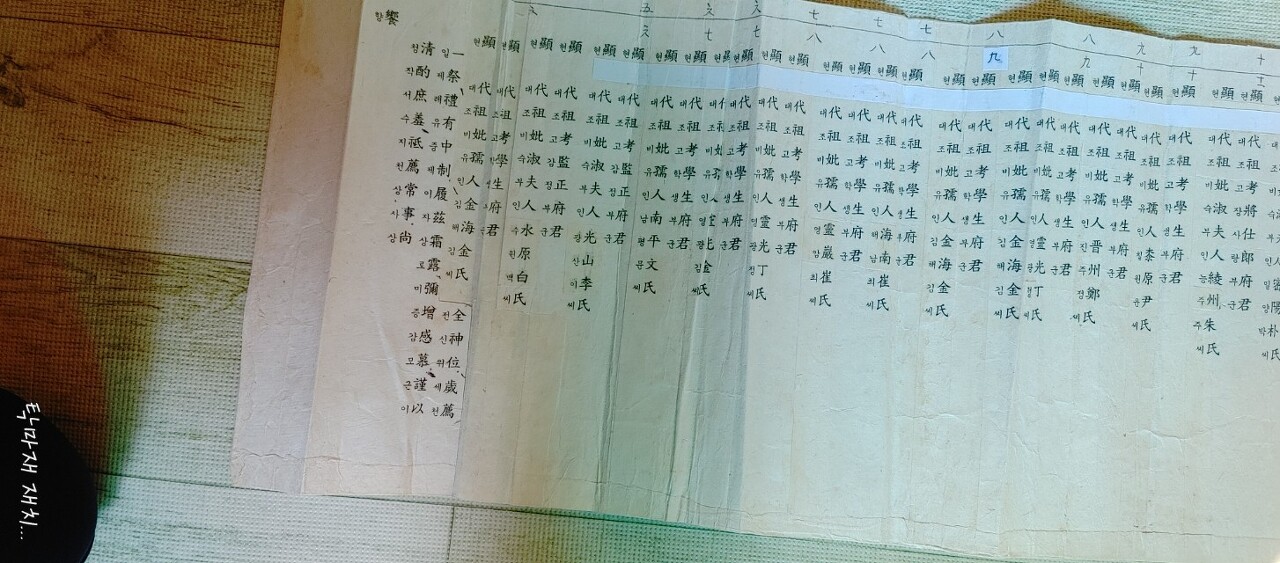 五 五 六 六 七 七 七 八 八 九 九 十
六 七 七 八 八 八 九 九 十 十 十一
현顯 대代 조祖 고考 장將 사仕 랑郎 부府 군君
현顯 대代 조祖 비妣 숙淑 부夫 인人 능綾 주州 주朱 씨氏
현顯 대代 조祖 고考 학學 생生 부府 군君
현顯 대代 조祖 비妣 유孺 인人 칠柒 원原 윤尹 씨氏
현顯 대代 조祖 고考 학學 생生 부府 군君
현顯 대代 조祖 비妣 유孺 인人 진晋 주州 정鄭 씨氏
현顯 대代 조祖 고考 학學 생生 부府 군君
현顯 대代 조祖 비妣 유孺 인人 영靈 광光 정丁 씨氏
현顯 대代 조祖 비妣 유孺 인人 김金 해海 김金 씨氏
현顯 대代 조祖 고考 학學 생生 부府 군君
현顯 대代 조祖 비妣 유孺 인人 김金 해海 김金 씨氏
현顯 대代 조祖 고考 학學 생生 부府 군君
현顯 대代 조祖 비妣 유孺 인人 해海 남南 최崔 씨氏
현顯 대代 조祖 고考 학學 생生 부府 군君
현顯 대代 조祖 비妣 유孺 인人 영靈 암巖 최崔 씨氏
현顯 대代 조祖 고考 학學 생生 부府 군君
현顯 대代 조祖 비妣 유孺 인人 영靈 광光 정丁 씨氏
현顯 대代 조祖 고考 학學 생生 부府 군君
현顯 대代 조祖 고考 학學 생生 부府 군君
현顯 대代 조祖 비妣 유孺 인人 남南 평平 문文 씨氏
현顯 대代 조祖 고考 감監 정正 부府 군君
현顯 대代 조祖 비妣 숙淑 부夫 인人 광光 산山 이李 씨氏
현顯 대代 조祖 고考 감監 정正 부府 군君
현顯 대代 조祖 비妣 숙淑 부夫 인人 수水 원原 백白 씨氏
현顯 대代 조祖 고考 학學 생生 부府 군君
현顯 대代 조祖 비妣 유孺 인人 김金 해海 김金 씨氏 전全 신神 위位 세歲 천薦
일一 제祭 례禮 유有 중中 제制 이履 자玆 상霜 로露 미彌 증增 감感 모慕 근謹 이以
청清 작酌 서庶 수羞 지祗 천薦 상常 사事 상尙
향饗